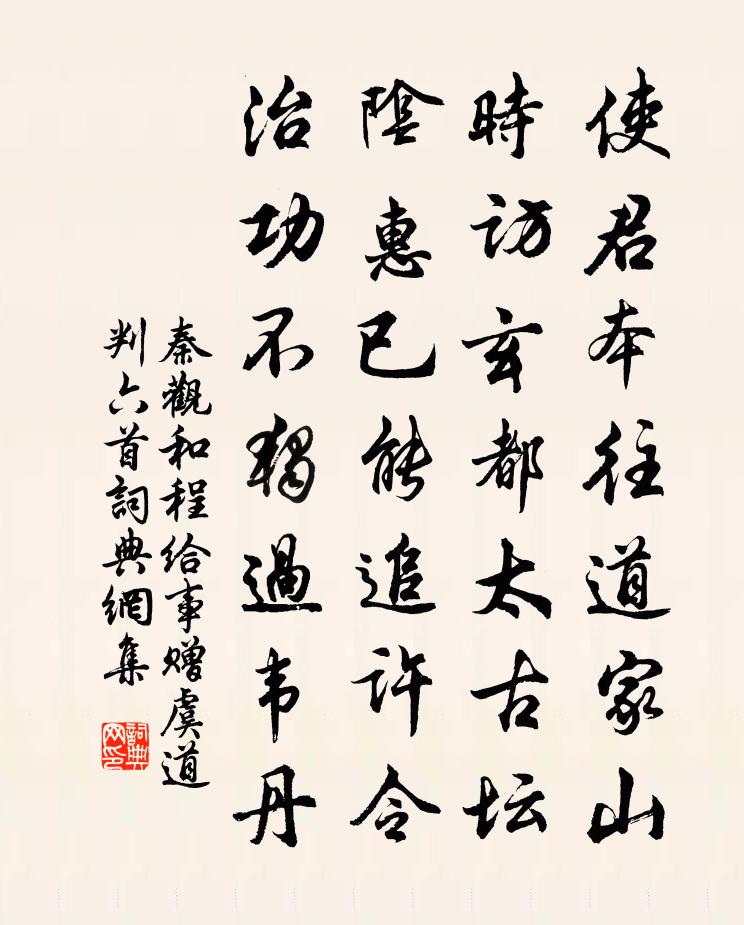 使君本往道家山
時訪玄都太古坛
陰惠已能追許令
治功不獨過韦丹
秦觀和程给事赠虞道
判六首詞典網集
詞典网印